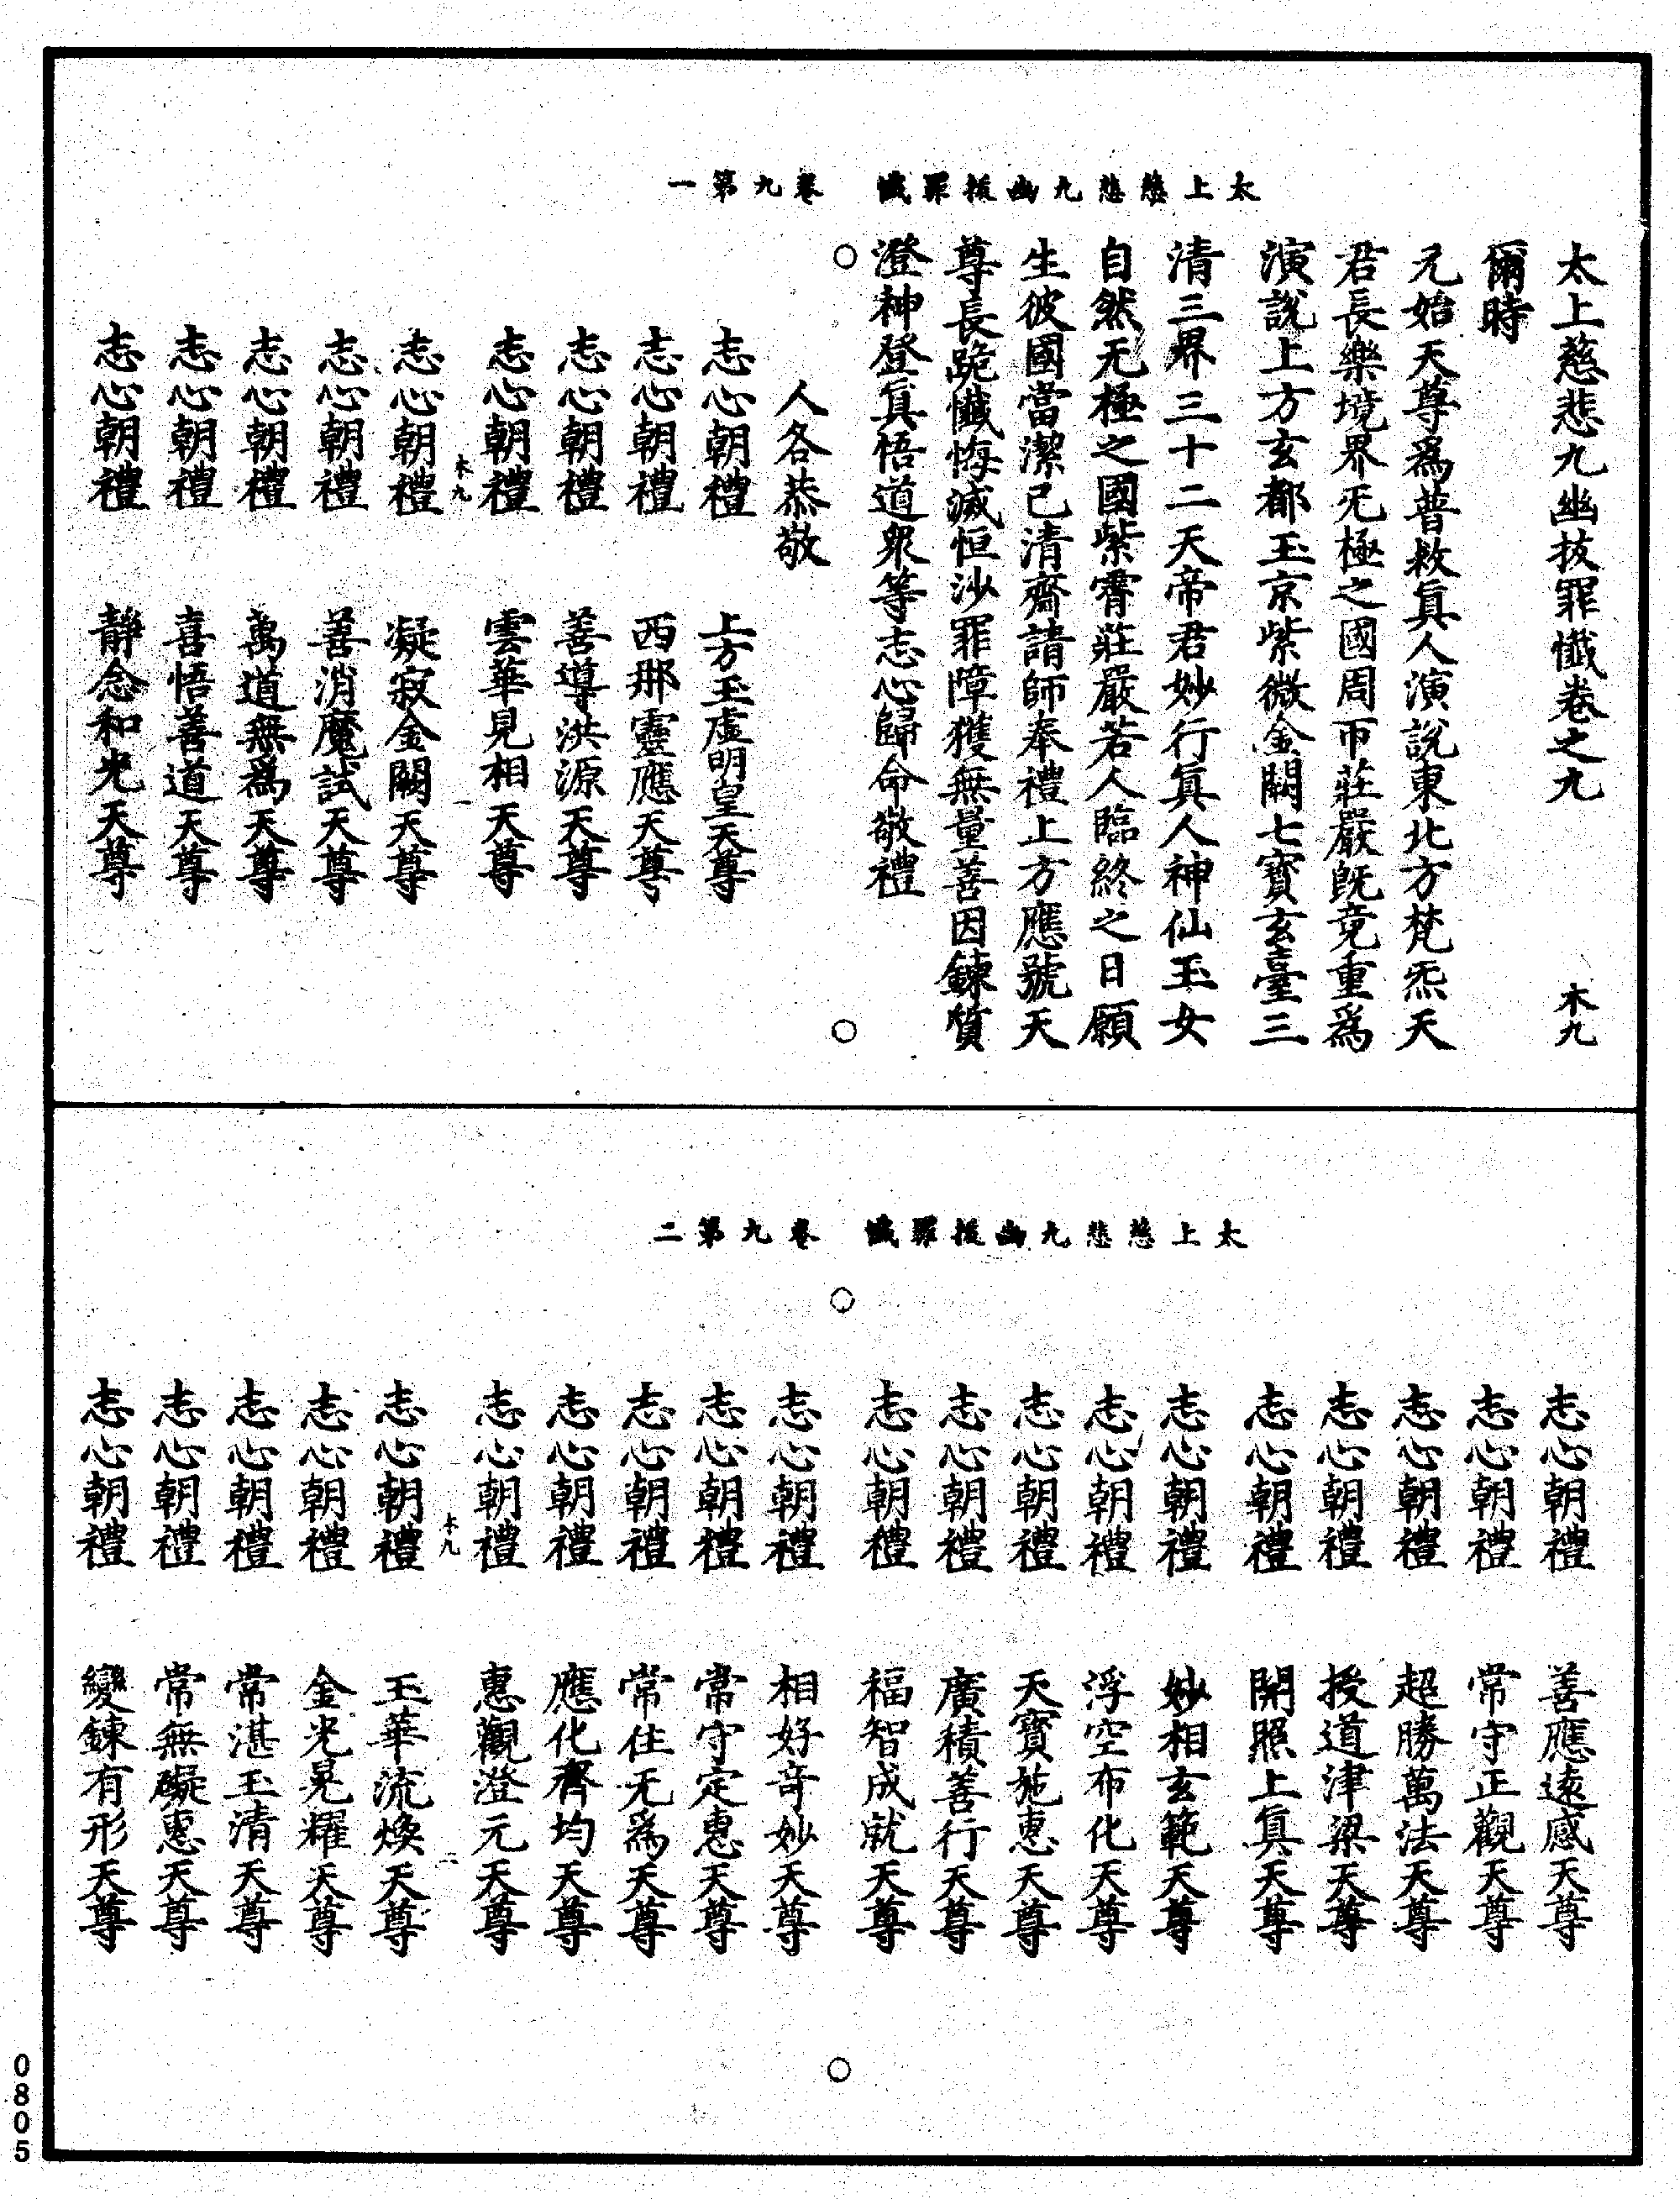 太上慈悲九幽拔罪懺　卷九第一
太上慈悲九幽拔罪懺卷之九　木九
爾時
元始天尊爲普救眞人演說東北方梵炁天
君長樂境界无極之國周帀莊嚴旣竟重爲
演說上方玄都玉京紫微金闕七寶玄臺三
清三界三十二天帝君妙行眞人神仙玉女
自然无極之國紫霄莊嚴若人臨終之日願
生彼國當潔己清齋請師奉禮上方應號天
尊長跪懺悔滅恒沙罪障獲無量善因鍊質
澄神登眞悟道衆等志心歸命敬禮
人各恭敬
志心朝禮　上方玉虛明皇天尊
志心朝禮　西那靈應天尊
志心朝禮　善導洪源天尊
志心朝禮　雲華見相天尊
木九　一
志心朝禮　凝寂金闕天尊
志心朝禮　善消魔試天尊
志心朝禮　萬道無爲天尊
志心朝禮　喜悟善道天尊
志心朝禮　靜念和光天尊
太上慈悲九幽拔罪懺　卷九第二
志心朝禮　善應遠感天尊
志心朝禮　常守正觀天尊
志心朝禮　超勝萬法天尊
志心朝禮　授道津梁天尊
志心朝禮　開照上眞天尊
志心朝禮　妙相玄範天尊
志心朝禮　浮空布化天尊
志心朝禮　天寶施惠天尊
志心朝禮　廣積善行天尊
志心朝禮　福智成就天尊
志心朝禮　相好奇妙天尊
志心朝禮　常守定惠天尊
志心朝禮　常住无爲天尊
志心朝禮　應化齊均天尊
志心朝禮　惠觀澄元天尊
木九　二
志心朝禮　玉華流煥天尊
志心朝禮　金光晃耀天尊
志心朝禮　常湛玉清天尊
志心朝禮　常無礙惠天尊
志心朝禮　變鍊有形天尊
0805